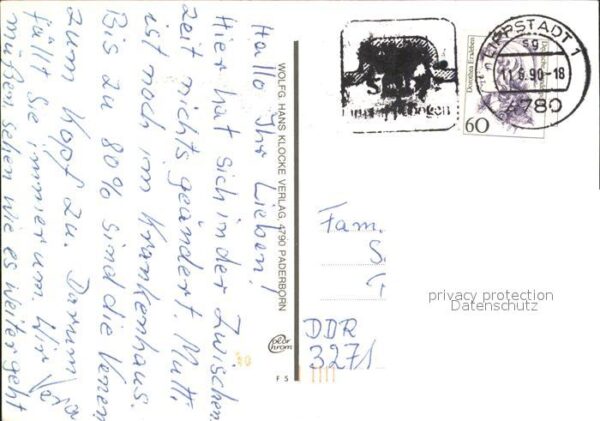 Hallo Ihr Lieben!
Hier hat sich in der Zwischen
zeit nichts geändert. Mutti
ist noch im Krankenhaus.
Bis zu 80% sind die Venen
zum Kopf zu. Darum
fällt sie immer um. Wir
müßen sehen wie es weitergeht
WOLFG. HANS KLOCKE VERLAG, 4790 PADERBORN
F 5
LIPPSTADT 1
sg
11.6.90-18
4780
Dorothea Erxleben
60
Fam.
S.
DDR
3271
privacy protection
Datenschutz